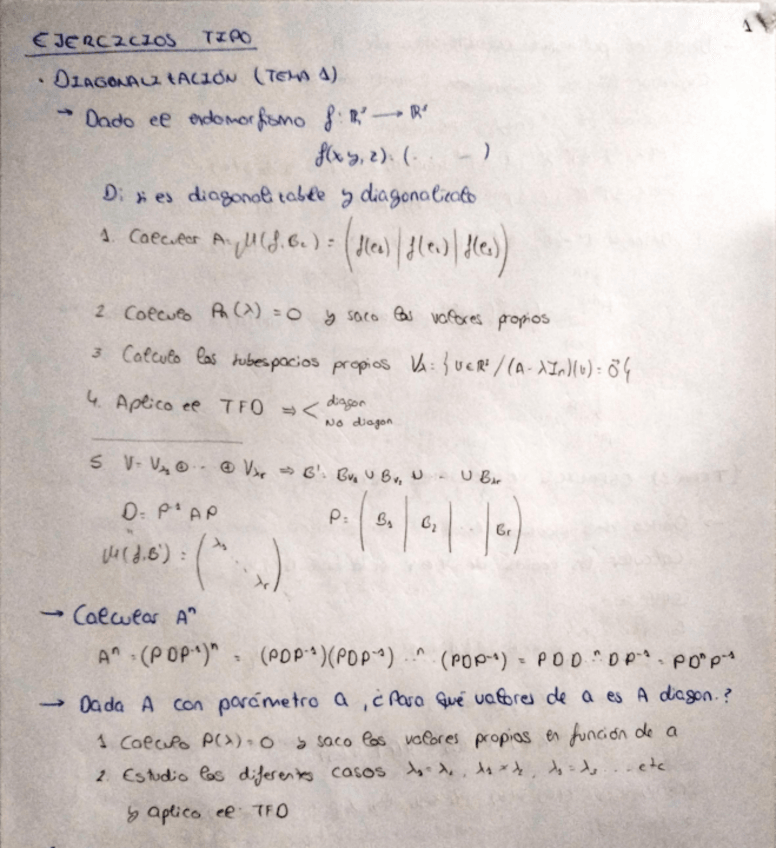 1
EJERCICIOS TIPO
· DIAGONALIZACIÓN (TEMA 1)
→ Dado el endomorfismo f: R³ → R³
f(x,y,z) = (· · · - )
Di si es diagonalizable y diagonalizalo
1. Calcular A = M(f, Bc) = ( f(e₁) | f(e₂) | f(e₃) )
2 Calculo Pₐ(λ) = 0 y saco los valores propios
3 Calculo los subespacios propios Vλ = { v ∈ R³ / (A - λIn)(v) = 0⃗ }
4. Aplico el TFD ⇒ < diagon
No diagon
5 V = Vλ₁ ⊕ ·· ⊕ Vλr ⇒ B' = Bv₁ ∪ Bv₂ ∪ - ∪ Bλr
D = P⁻¹ A P P = ( B₁ | B₂ | | Br )
M(f, B') = ( λ₁ ⋱ λr )
→ Calcular Aⁿ
Aⁿ = (PDP⁻¹)ⁿ = (PDP⁻¹)(PDP⁻¹) ..ⁿ. (PDP⁻¹) = P D D .ⁿ. D P⁻¹ = PDⁿP⁻¹
→ Dada A con parámetro a, ¿Para qué valores de a es A diagon.?
1 Calculo P(λ) = 0 y saco los valores propios en función de a
2. Estudio los diferentes casos λ₁ = λ₂, λ₁ ≠ λ₂, λ₁ = λ₃ ... etc
y aplico el TFD